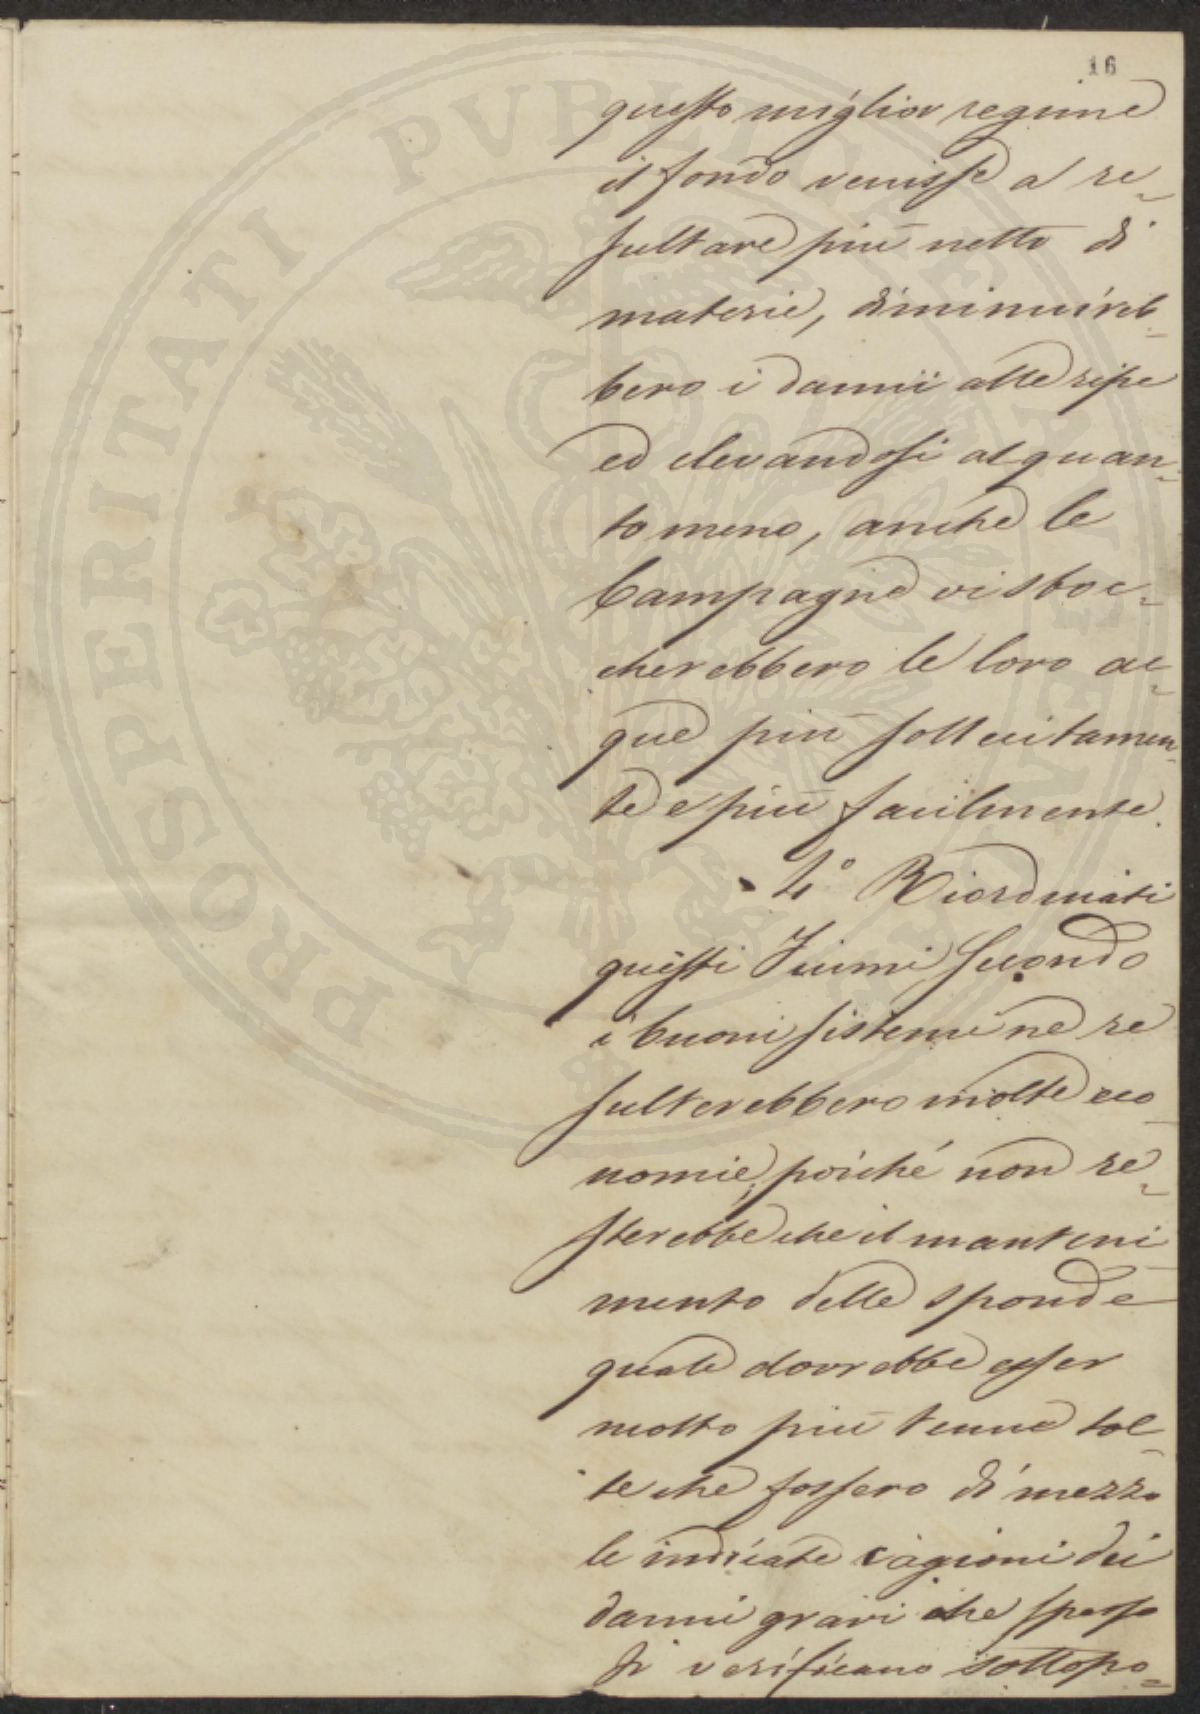 16
questo miglior regime
il fondo venisse a re-
sultare più netto di
materie, diminuireb-
bero i dannii alle ripe
ed elevandosi alquan-
to meno, anche le
Campagne vi sboc-
cherebbero le loro ac-
que più sollecitamen-
te e più facilmente.
4° Riordinati
questi Fiumi secondo
i buoni sistemi ne re
sulterebbero molte eco
nomie, poiché non re-
sterebbe che il manteni
mento delle sponde
quale dovrebbe esser
molto più tenue tol-
te che fossero di mezzo
le indicate cagioni dei
danni gravi che spesso
si verificano sottopo-
PROSPERITATI PVBLICAE